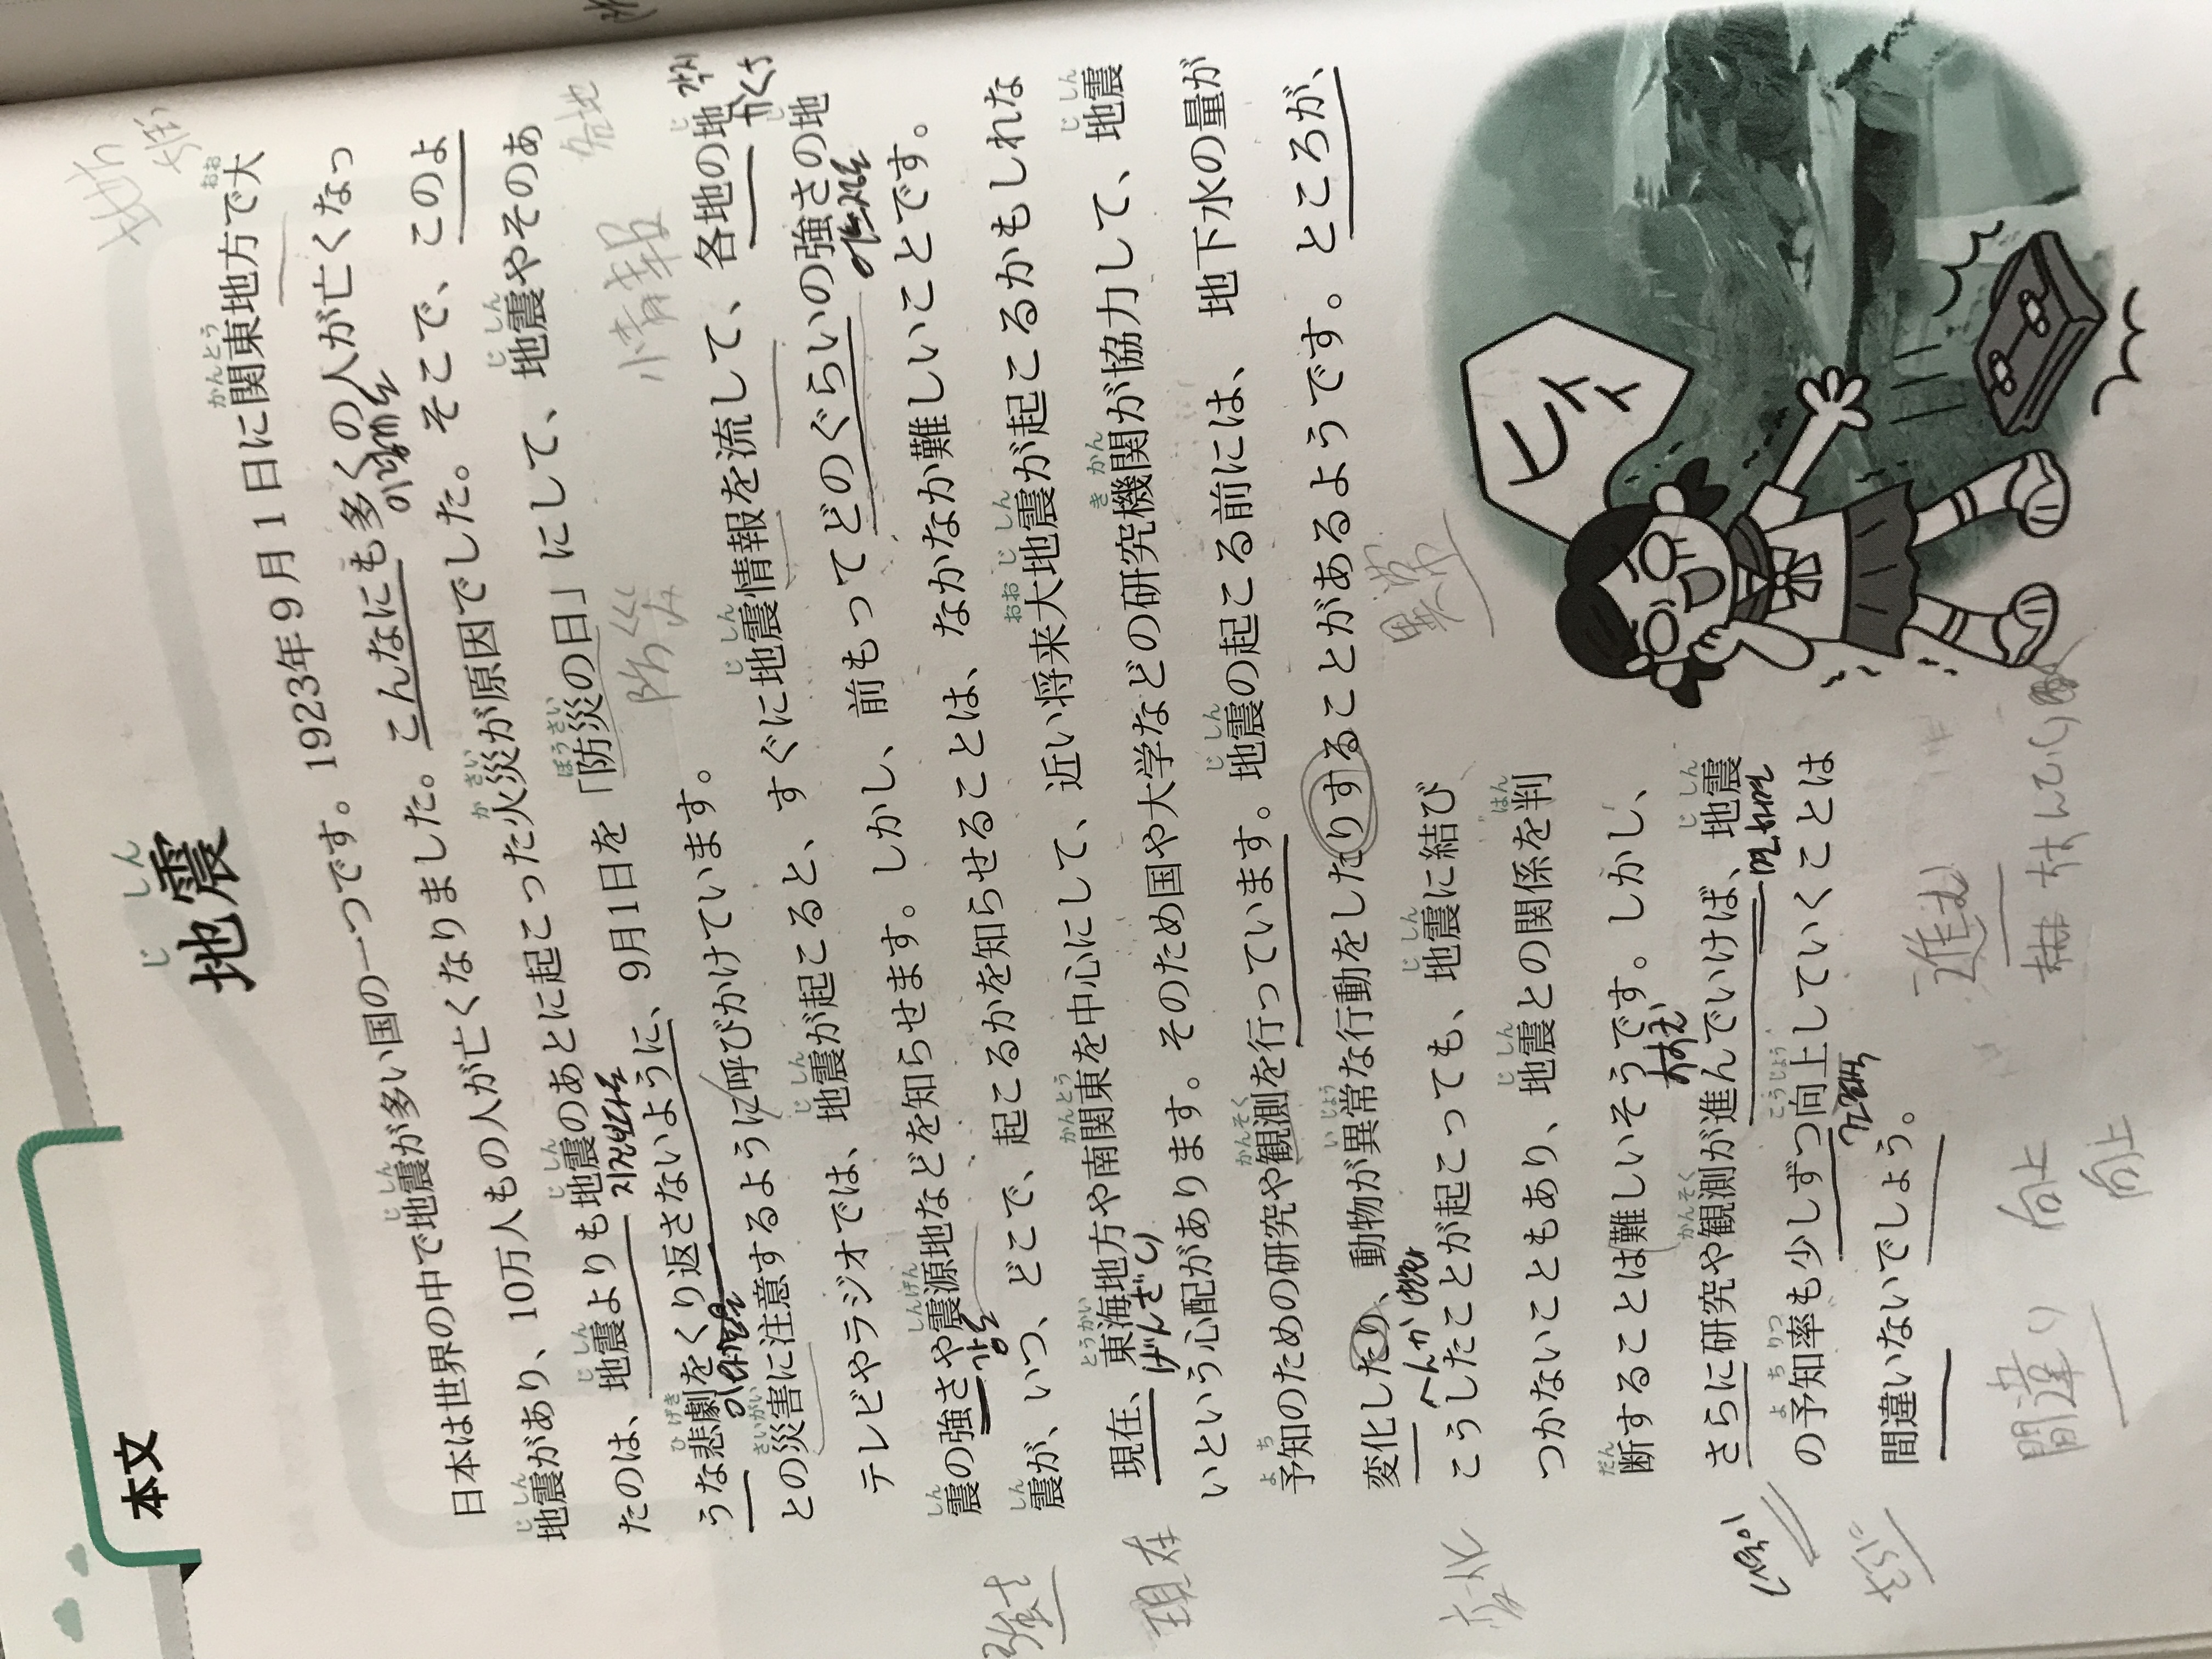 本文
地震
日本は世界の中で地震が多い国の一つです。1923年9月1日に関東地方で大
地震があり、10万人もの人が亡くなりました。こんなにも多くの人が亡くなっ
たのは、地震よりも地震のあとに起こった火災が原因でした。そこで、このよ
うな悲劇をくり返さないように、9月1日を「防災の日」にして、地震やそのあ
との災害に注意するように呼びかけています。
テレビやラジオでは、地震が起こると、すぐに地震情報を流して、各地の地
震の強さや震源地などを知らせます。しかし、前もってどのぐらいの強さの地
震が、いつ、どこで、起こるかを知らせることは、なかなか難しいことです。
現在、東海地方や南関東を中心にして、近い将来大地震が起こるかもしれな
いという心配があります。そのため国や大学などの研究機関が協力して、地震
予知のための研究や観測を行っています。地震の起こる前には、地下水の量が
変化したり、動物が異常な行動をしたりすることがあるようです。ところが、
こうしたことが起こっても、地震に結び
つかないこともあり、地震との関係を判
断することは難しいそうです。しかし、
さらに研究や観測が進んでいけば、地震
の予知率も少しずつ向上していくことは
間違いないでしょう。
ヒィィ
各地
情報
防災
異常
強さ
現在
変化
げんざい
へんか
進む
向上
向上
間違い